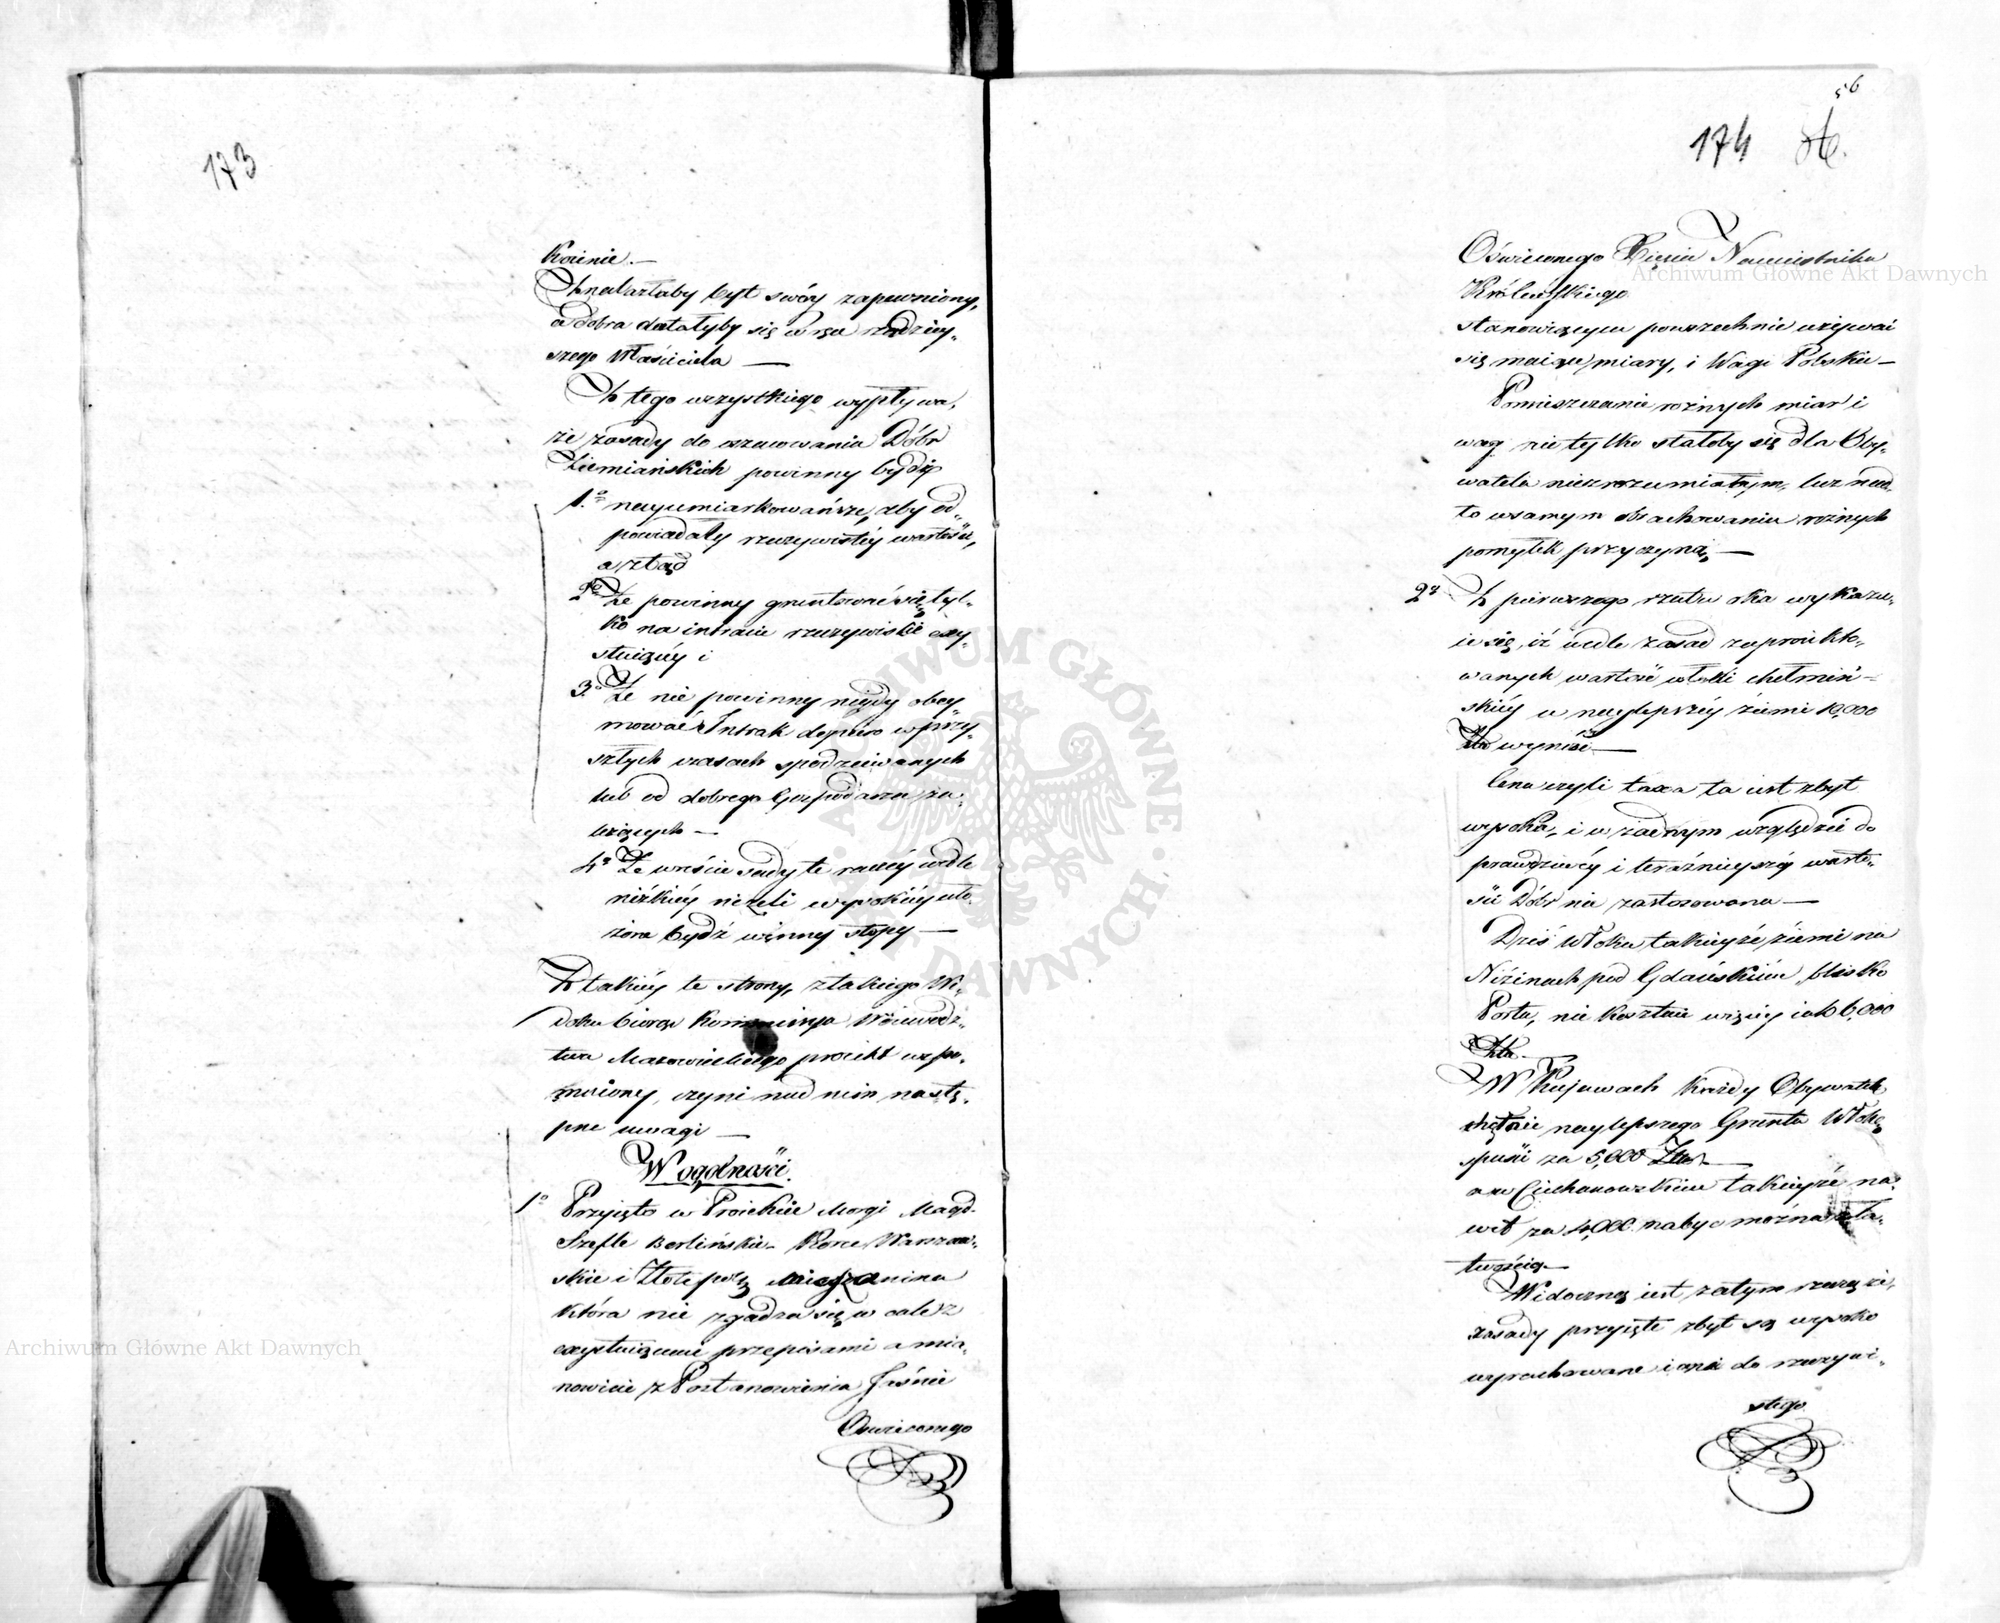 173
Koienie. —
Znalazłaby byt swóy zapewniony,
a dobra dostałyby się w ręce rządniey„
szego Właściciela —
Z tego wszystkiego wypływa,
że zasady do oszacowania Dóbr
Ziemiańskich powinny bydź
1.º nayumiarkowańsze, aby od„
powiadały rzeczywistey wartości,
a ztąd
2º Że powinny gruntować się tyl„
ko na intracie rzeczywiście exy„
stuiącéy i
3.º Że nie powinny nigdy obey„
mować Intrat dopiero w przy„
szłych czasach spodziewanych
lub od dobrego Gospodarza za„
leżących —
4º Że wreście sady te raczéy wedle
nizkiéy nieżeli wysokiéy uło„
żone bydź winny stopy —
Z takiéy te strony, z takiego Wi„
doku biorąc Kommissya Woiewodz„
twa Mazowieckiego proiekt wspo„
mniony, czyni nad nim nastę„
pne uwagi —
W ogólności.
1º Przyięto w Proiekcie Morgi Magd.
Szefle Berlińskie. Korce Warszaw„
skie i Złote pols. Mieszanina
która nie zgadza się w cale z
exystuiącemi przepisami a mia„
nowicie z Postanowienia Jaśnie
Oświeconego
56
174
Oświeconego Xięcia Namiestnika
Królewskiego
stanowiącym powszechnie używać
się maiące miary, i Wagi Polskie —
Pomieszczanie rożnych miar i
wag nie tylko stałoby się dla Oby„
watela niezrozumiałym, lecz nad„
to w samym obrachowaniu rożnych
pomyłek przyczyną —
2º Z pierwszego rzutu oka wykazu„
ie się, iż wedle zasad zaproiekto„
wanych wartość włóki chełmiń„
skiéy w naylepszéy ziemi 10,000
Złt wyniesie —
Cena czyli taxa ta iest zbyt
wysoka, i w żadnym względzie do
prawdziwéy i teraźnieyszéy warto„
ści Dóbr nie zastosowana —
Dziś Włoka takieyże ziemi na
Nizinach pod Gdańskiem, blisko
Portu, nie kosztuie więcéy iak 6,000
Złt. —
W Kujawach każdy Obywatel
chętnie naylepszego Gruntu Włokę
spuści za 5,000 Złt. —
a w Ciechanowskiem takieyże na„
wet za 4,000 nabyć można z ła„
twością —
Widoczną iest zatym rzeczą że,
zasady przyięte zbyt są wysoko
wyrachowane i ani do rzeczywi„
stego
Archiwum Główne Akt Dawnych
Archiwum Główne Akt Dawnych
ARCHIWUM GŁÓWNE AKT DAWNYCH